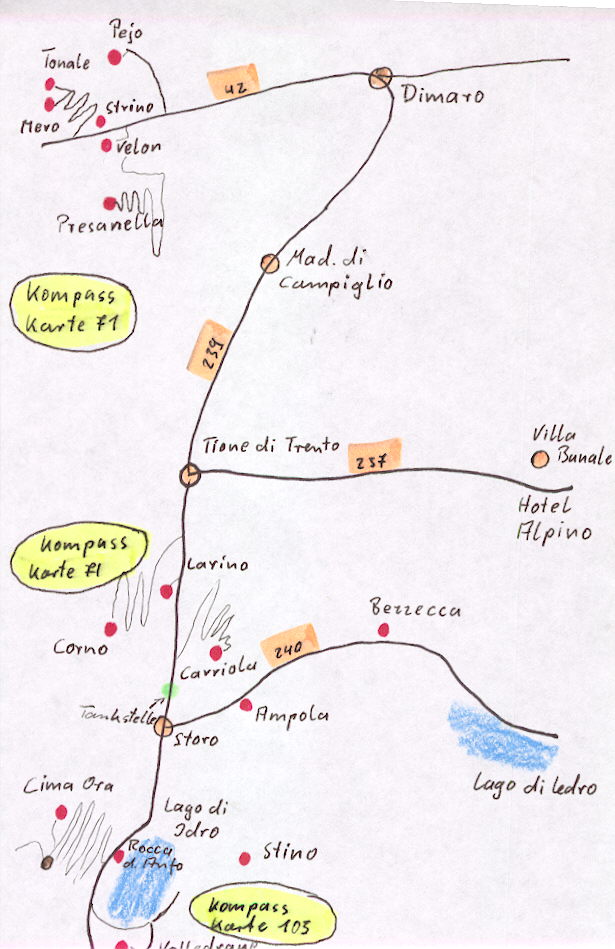 Pejo
Tonale
42
Dimaro
Mero
Strino
Velon
Presanella
Mad. di
Campiglio
Kompass
Karte 71
239
Tione di Trento
237
Villa
Banale
Hotel
Alpino
Kompass
Karte 71
Larino
Bezzecca
Corno
240
Carriola
Tankstelle
Ampola
Storo
Cima Ora
Lago di ledro
Lago di
Idro
Rocca
d. Anfo
Stino
Kompass
Karte 103